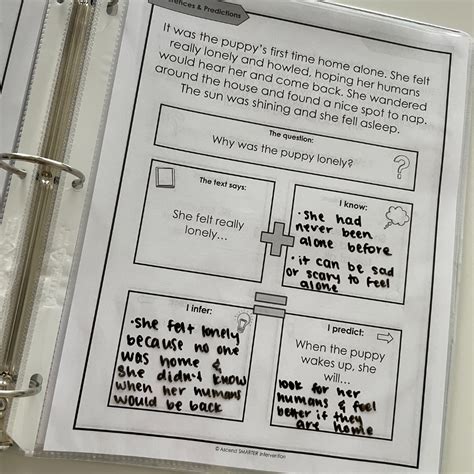 & Predictions
It was the puppy's first time home alone. She felt
really lonely and howled, hoping her humans
would hear her and come back. She wandered
around the house and found a nice spot to nap.
The sun was shining and she fell asleep.
The question:
Why was the puppy lonely?
The text says:
She felt really
lonely...
I know:
• She had
never been
alone before
• it can be sad
or scary to feel
alone
I infer:
• She felt lonely
because no one
was home &
she didn't know
when her humans
would be back
I predict:
When the puppy
wakes up, she
will...
look for her
humans & feel
better if they
are home
© Ascend SMARTER Intervention